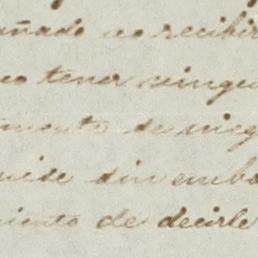 añado no recibir
no tener ningu
mento de ning
uise sin emba
iento de decirle